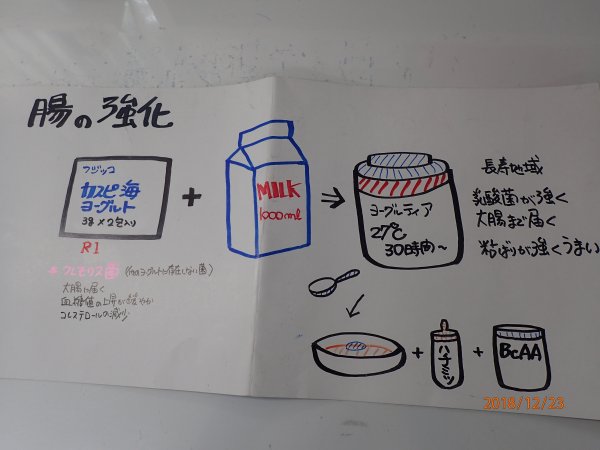 腸の強化
フジッコ
カスピ海
ヨーグルト
3g×2包入り
R1
+ クレモリス菌 (他のヨーグルトに存在しない菌)
大腸に届く
血糖値の上昇が緩やか
コレステロールの減少
+
MILK
1000ml
⇒
ヨーグルティア
27℃
30時間〜
長寿地域
乳酸菌が強く
大腸まで届く
粘ばりが強くうまい
+
ハチミツ
+
BcAA
2018/12/23